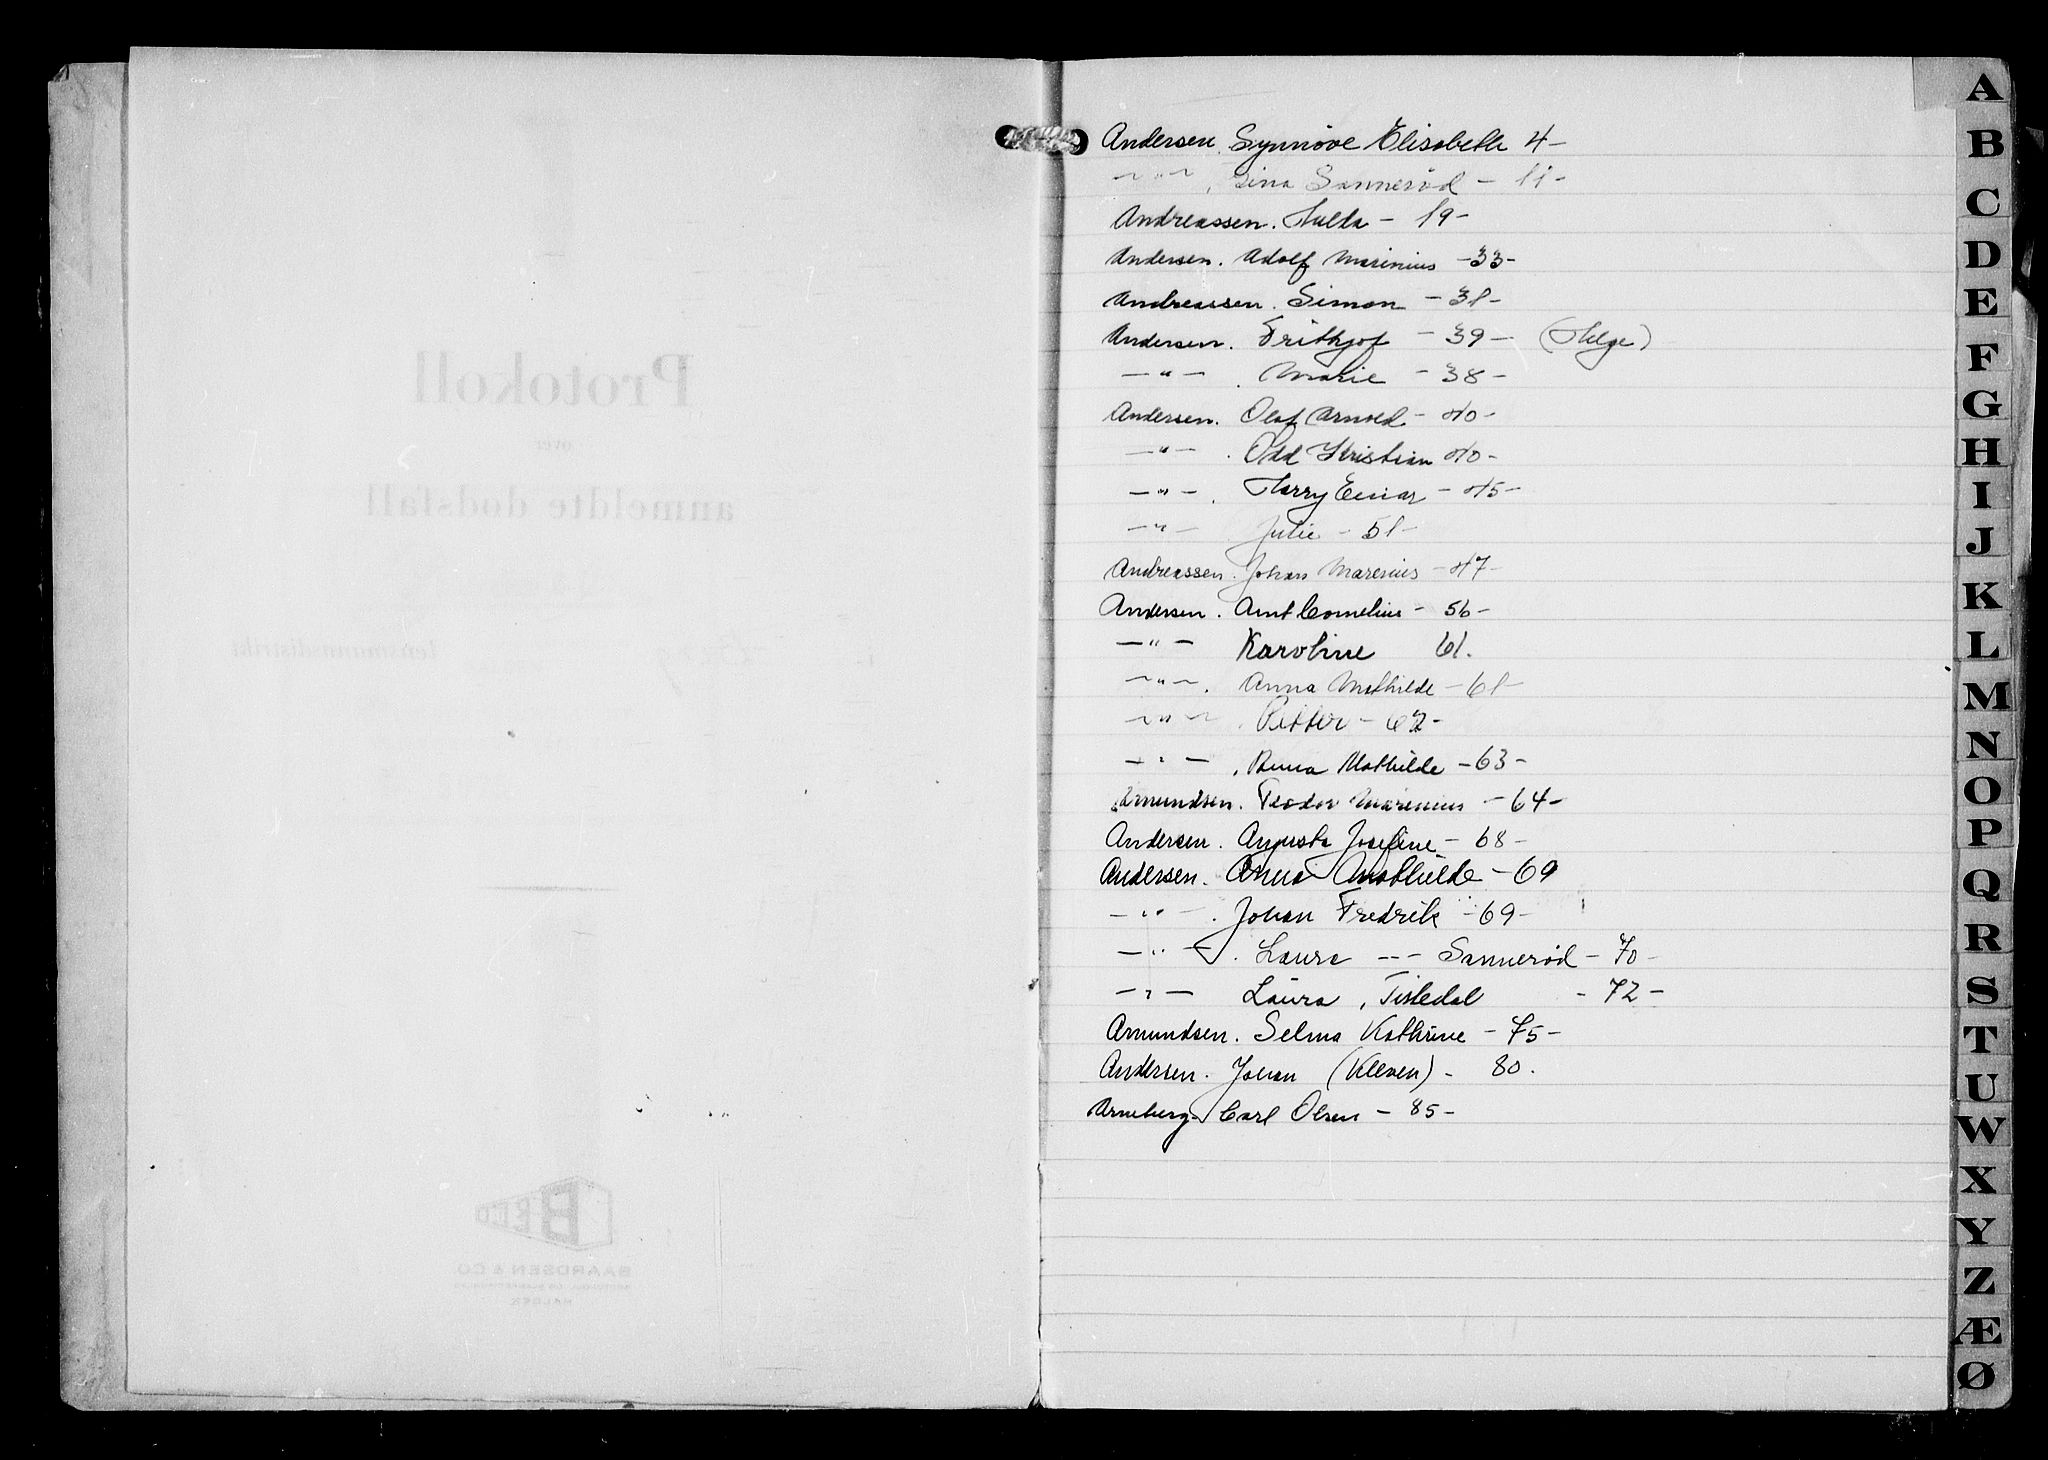 Protokoll
over
anmeldte dødsfall
lensmannsdistrikt
BECO
BAARDSEN & CO.
HALDEN
Andersen. Synnöve Elisabeth 4-
-"- , Lina Sannerød - 11-
Andreassen. Hulda - 19-
Andersen. Adolf Marinius -33-
Andreassen. Simon - 31-
Andersen. Frithjof - 39 - (Helge)
-"- . Marie - 38-
Andersen. Olaf Arnold - 40-
-"- . Odd Kristian 40-
-"- . Harry Einar - 45-
-"- Julie - 51-
Andreassen. Johan Marenius - 47-
Andersen. Arnt Cornelius - 56-
-"- Karoline 61.
-"- . Anna Mathilde - 61-
-"- . Petter - 62-
-"- . Anna Mathilde - 63-
Amundsen. Teodor Marenius - 64-
Andersen. Augusta Josefine - 68-
Andersen. Anna Mathilde - 69
-"- . Johan Fredrik - 69-
-"- . Laura --- Sannerød - 70-
-"- Laura , Tistedal - 72-
Amundsen. Selma Kathrine - 75-
Andersen. Johan (Kleven) - 80.
Arneberg. Carl Olsen - 85-
A
B
C
D
E
F
G
H
I
J
K
L
M
N
O
P
Q
R
S
T
U
W
X
Y
Z
Æ
Ø